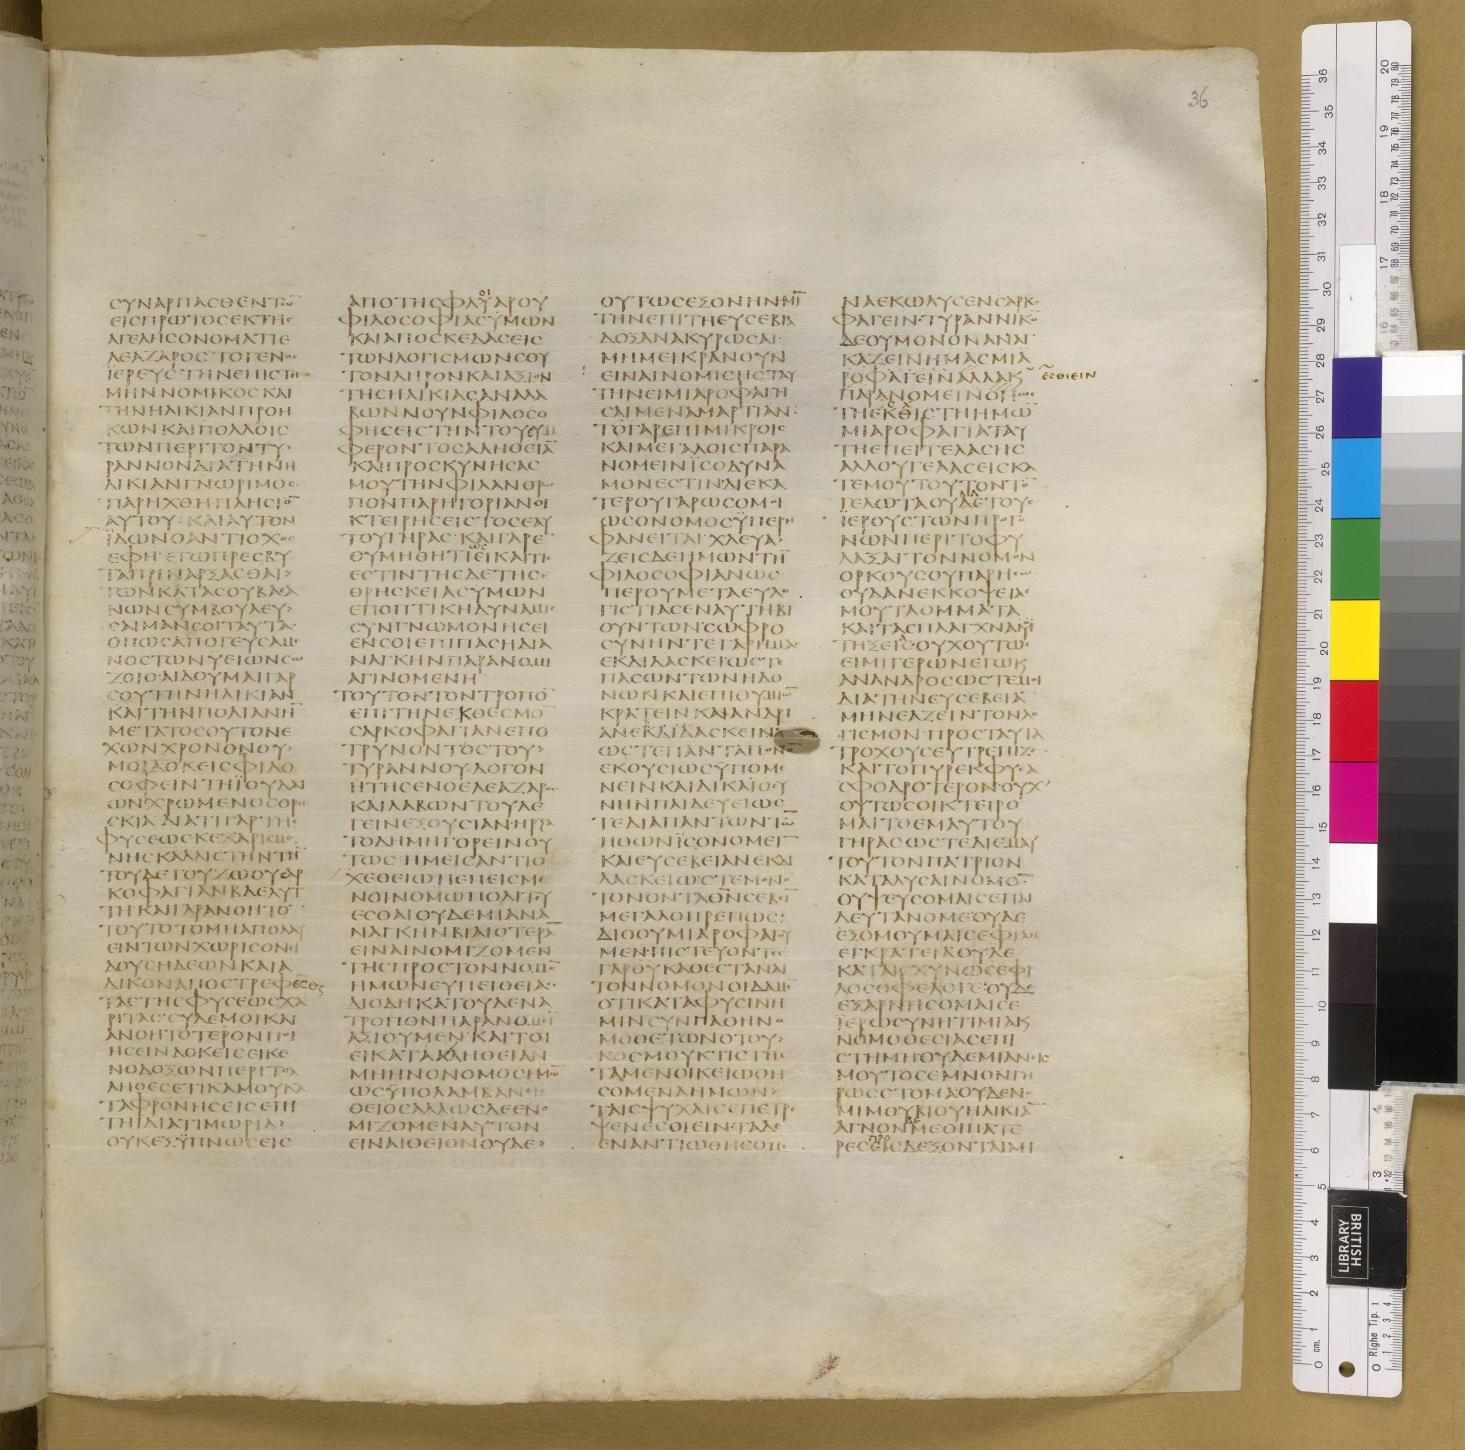 ϹΥΝΑΡΠΑϹΘΕΝΤΩ̄
ΕΙϹΠΡΩΤΟϹΕΚΤΗϹ
ΑΓΕΛΗϹΟΝΟΜΑΤΙΕ
ΛΕΑΖΑΡΟϹΤΟΓΕΝΟϹ
ΪΕΡΕΥϹΤΗΝΕΠΙϹΤΗ
ΜΗΝΝΟΜΙΚΟϹΚΑΙ
ΤΗΝΗΛΙΚΙΑΝΠΡΟΗ
ΚΩΝΚΑΙΠΟΛΛΟΙϹ
ΤΩΝΠΕΡΙΤΟΝΤΥ
ΡΑΝΝΟΝΔΙΑΤΗΝΗ
ΛΙΚΙΑΝΓΝΩΡΙΜΟϹ
ΠΑΡΗΧΘΗΠΛΗϹΙΟ̄
ΑΥΤΟΥ·ΚΑΙΑΥΤΟΝ
ΪΔΩΝΟΑΝΤΙΟΧΟϹ
ΕΦΗ·ΕΓΩΠΡΕϹΒΥ
ΤΑΠΡΙΝΑΡΞΑϹΘΑΙ
ΤΩΝΚΑΤΑϹΟΥΒΑϹΑ
ΝΩΝϹΥΜΒΟΥΛΕΥ
ϹΑΙΜΑΝϹΟΙΤΑΥΤΑ
ΟΠΩϹΑΠΟΓΕΥϹΑΜΕ
ΝΟϹΤΩΝΫΕΙΩΝϹΩ
ΖΟΙΟΑΙΔΟΥΜΑΙΓΑΡ
ϹΟΥΤΗΝΗΛΙΚΙΑΝ
ΚΑΙΤΗΝΠΟΛΙΑΝΗ̄
ΜΕΤΑΤΟϹΟΥΤΟΝΕ
ΧΩΝΧΡΟΝΟΝΟΥ
ΜΟΙΔΟΚΕΙϹΦΙΛΟ
ϹΟΦΕΙΝΤΗΪΟΥΔΑΙ
ΩΝΧΡΩΜΕΝΟϹΘΡΗ
ϹΚΙΑΔΙΑΤΙΓΑΡΤΗϹ
ΦΥϹΕΩϹΚΕΧΑΡΙϹΜΕ
ΝΗϹΚΑΛΛΙϹΤΗΝΤΗ̄
ΤΟΥΔΕΤΟΥΖΩΟΥϹΑΡ
ΚΟΦΑΓΙΑΝΒΔΕΛΥΤ
ΤΗΚΑΙΓΑΡΑΝΟΗΤΟ̄
ΤΟΥΤΟΤΟΜΗΑΠΟΛΑΥ
ΕΙΝΤΩΝΧΩΡΙϹΟΝΕΙ
ΔΟΥϹΗΔΕΩΝΚΑΙΑ
ΔΙΚΟΝΑΠΟϹΤΡΕΦΕϹΘΕ
ΤΑϹΤΗϹΦΥϹΕΩϹΧΑ
ΡΙΤΑϹϹΥΔΕΜΟΙΚΑΙ
ΑΝΟΗΤΟΤΕΡΟΝΠΟΙ
ΗϹΕΙΝΔΟΚΕΙϹΕΙΚΕ
ΝΟΔΟΞΩΝΠΕΡΙΤΟΑ
ΛΗΘΕϹΕΤΙΚΑΜΟΥΚΑ
ΤΑΦΡΟΝΗϹΕΙϹΕΠΙ
ΤΗΙΔΙΑΤΙΜΩΡΙΑ
ΟΥΚΕΞΫΠΝΩϹΕΙϹ
ΑΠΟΤΗϹΦΛΥΑΡΟΥ
ΦΙΛΟϹΟΦΙΑϹΫΜΩΝ
ΚΑΙΑΠΟϹΚΕΔΑϹΕΙϹ
ΤΩΝΛΟΓΙϹΜΩΝϹΟΥ
ΤΟΝΛΗΡΟΝΚΑΙΑΞΙΟΝ
ΤΗϹΗΛΙΚΙΑϹΑΝΑΛΑ
ΒΩΝΝΟΥΝΦΙΛΟϹΟ
ΦΗϹΕΙϹΤΗΝΤΟΥϹΥΜ
ΦΕΡΟΝΤΟϹΑΛΗΘΕΙᾹ
ΚΑΙΠΡΟϹΚΥΝΗϹΑϹ
ΜΟΥΤΗΝΦΙΛΑΝΘΡΩ
ΠΟΝΠΑΡΗΓΟΡΙΑΝΟΙ
ΚΤΕΙΡΗϹΕΙϹΤΟϹΕΑΥ
ΤΟΥΓΗΡΑϹ·ΚΑΙΓΑΡΕ
ΘΥΜΗΘΗΤΙΕΙΚΑΙΤΙϹ
ΕϹΤΙΝΤΗϹΔΕΤΗϹ
ΘΡΗϹΚΕΙΑϹΫΜΩΝ
ΕΠΟΠΤΙΚΗΔΥΝΑΜΙϹ
ϹΥΝΓΝΩΜΟΝΗϹΕΙ
ΕΝϹΟΙΕΠΙΠΑϹΗΔΙΑ
ΝΑΓΚΗΝΠΑΡΑΝΟΜΙ
ΑΓΙΝΟΜΕΝΗ
ΤΟΥΤΟΝΤΟΝΤΡΟΠΟ̄
ΕΠΙΤΗΝΕΚΘΕϹΜΟ̄
ϹΑΡΚΟΦΑΓΙΑΝΕΠΟ
ΤΡΥΝΟΝΤΟϹΤΟΥ
ΤΥΡΑΝΝΟΥΛΟΓΟΝ
ΗΤΗϹΕΝΟΕΛΕΑΖΑΡΟϹ
ΚΑΙΛΑΒΩΝΤΟΥΛΕ
ΓΕΙΝΕΞΟΥϹΙΑΝΗΡΞΑ
ΤΟΔΗΜΗΓΟΡΕΙΝΟΥ
ΤΩϹ·ΗΜΕΙϹΑΝΤΙΟ
ΧΕΘΕΙΩΠΕΠΕΙϹΜΕ
ΝΟΙΝΟΜΩΠΟΛΙΤΕΥ
ΕϹΘΑΙΟΥΔΕΜΙΑΝΑ
ΝΑΓΚΗΝΒΙΑΙΟΤΕΡᾹ
ΕΙΝΑΙΝΟΜΙΖΟΜΕΝ
ΤΗϹΠΡΟϹΤΟΝΝΟΜΟ̄
ΗΜΩΝΕΥΠΕΙΘΕΙΑϹ
ΔΙΟΔΗΚΑΤΟΥΔΕΝΑ
ΤΡΟΠΟΝΠΑΡΑΝΟΜΕῙ
ΑΞΙΟΥΜΕΝ·ΚΑΙΤΟΙ
ΕΙΚΑΤΑΑΛΗΘΕΙΑΝ
ΜΗΗΝΟΝΟΜΟϹΗΜΩ̄
ΩϹΫΠΟΛΑΜΒΑΝΕΙϹ
ΘΕΙΟϹΑΛΛΩϹΔΕΕΝΟ
ΜΙΖΟΜΕΝΑΥΤΟΝ
ΕΙΝΑΙΘΕΙΟΝΟΥΔΕ
ΟΥΤΩϹΕΞΟΝΗΝΗΜῙ
ΤΗΝΕΠΙΤΗΕΥϹΕΒΙΑ
ΔΟΞΑΝΑΚΥΡΩϹΑΙ
ΜΗΜΕΙΚΡΑΝΟΥΝ
ΕΙΝΑΙΝΟΜΙϹΗϹΤΑΥ
ΤΗΝΕΙΜΙΑΡΟΦΑΓΗ
ϹΑΙΜΕΝΑΜΑΡΤΙΑΝ:
ΤΟΓΑΡΕΠΙΜΙΚΡΟΙϹ
ΚΑΙΜΕΓΑΛΟΙϹΠΑΡΑ
ΝΟΜΕΙΝΪϹΟΔΥΝΑ
ΜΟΝΕϹΤΙΝΔΙΕΚΑ
ΤΕΡΟΥΓΑΡΩϹΟΜΟΙ
ΩϹΟΝΟΜΟϹΫΠΕΡΗ
ΦΑΝΕΙΤΑΙ·ΧΛΕΥΑ
ΖΕΙϹΔΕΗΜΩΝΤΗ̄
ΦΙΛΟϹΟΦΙΑΝΩϹ
ΠΕΡΟΥΜΕΤΑΕΥΛΟ
ΓΙϹΤΙΑϹΕΝΑΥΤΗΒΙ
ΟΥΝΤΩΝϹΩΦΡΟ
ϹΥΝΗΝΤΕΓΑΡΗΜΑϹ
ΕΚΔΙΔΑϹΚΕΙΩϹΤΕ
ΠΑϹΩΝΤΩΝΗΔΟ
ΝΩΝΚΑΙΕΠΙΘΥΜΙΩ̄
ΚΡΑΤΕΙΝΚΑΙΑΝΔΡΙ
ΑΝΕΚΔΙΔΑϹΚΕΙΝ
ΩϹΤΕΠΑΝΤΑΠΟΝΟ̄
ΕΚΟΥϹΙΩϹΫΠΟΜΕ
ΝΕΙΝΚΑΙΔΙΚΑΙΟϹΥ
ΝΗΝΠΑΙΔΕΥΕΙΩϹ
ΤΕΔΙΑΠΑΝΤΩΝΤΩ̄
ΗΘΩΝΪϹΟΝΟΜΕῙ
ΚΑΙΕΥϹΕΒΕΙΑΝΕΚΔΙ
ΔΑϹΚΕΙΩϹΤΕΜΟΝΟ̄
ΤΟΝΟΝΤΑΘΝϹΕΒΕῙ
ΜΕΓΑΛΟΠΡΕΠΩϹ:
ΔΙΟΟΥΜΙΑΡΟΦΑΓΟΥ
ΜΕΝΠΙϹΤΕΥΟΝΤΕϹ
ΓΑΡΘΥΚΑΘΕϹΤΑΝΑΙ
ΤΟΝΝΟΜΟΝΟΙΔΑΜΕ
ΟΤΙΚΑΤΑΦΥϹΙΝΗ
ΜΙΝϹΥΝΠΑΘΗΝΟ
ΜΟΘΕΤΩΝΟΤΟΥ
ΚΟϹΜΟΥΚΤΙϹΤΗϹ
ΤΑΜΕΝΟΙΚΕΙΩΘΗ
ϹΟΜΕΝΑΗΜΩΝ
ΤΑΙϹΨΥΧΑΙϹΕΠΕΤΡΕ
ΨΕΝΕϹΘΙΕΙΝΤΑΔΕ
ΕΝΑΝΤΙΩΘΗϹΟΜΕ
ΝΑΕΚΩΛΥϹΕΝϹΑΡΚΟ
ΦΑΓΕΙΝ·ΤΥΡΑΝΝΙΚΟ̄
ΔΕΟΥΜΟΝΟΝΑΝΑΓ
ΚΑΖΕΙΝΗΜΑϹΜΙΑ
ΡΟΦΑΓΕΙΝΑΛΛΑΚΑΙ
ΕϹΘΙΕΙΝ
ΠΑΡΑΝΟΜΕΙΝΟΠΩϹ
ΤΗΕΚΘΙϹΤΗΗΜΩ̄
ΜΙΑΡΟΦΑΓΙΑΤΑΥ
ΤΗΕΠΕΓΓΕΛΑϹΗϹ
ΑΛΛΟΥΓΕΛΑϹΕΙϹΚΑ
ΤΕΜΟΥΤΟΥΤΟΝΤΟ̄
ΓΕΛΩΤΑΟΥΔΕΤΟΥϹ
ΪΕΡΟΥϹΤΩΝΠΡΟΓΟ
ΝΩΝΠΕΡΙΤΟΦΥ
ΛΑΞΑΙΤΟΝΝΟΜΟΝ
ΟΡΚΟΥϹΟΥΠΑΡΗϹΩ
ΟΥΔΑΝΕΚΚΟΨΕΙΑϹ
ΜΟΥΤΑΟΜΜΑΤΑ
ΚΑΙΤΑϹΠΛΑΓΧΝΑΜΟΥ
ΤΗΞΕΙϹΟΥΧΟΥΤΩϹ
ΕΙΜΙΓΕΡΩΝΕΓΩΚΑΙ
ΑΝΑΝΔΡΟϹΩϹΤΕΜΟΙ
ΔΙΑΤΗΝΕΥϹΕΒΕΙᾹ
ΜΗΝΕΑΖΕΙΝΤΟΝΛΟ
ΓΙϹΜΟΝΠΡΟϹΤΑΥΤΑ
ΤΡΟΧΟΥϹΕΥΤΡΕΠΙΖΕ
ΚΑΙΤΟΠΥΡΕΚΦΥϹΑ
ϹΦΟΔΡΟΤΕΡΟΝ·ΟΥΧ
ΟΥΤΩϹΟΙΚΤΕΙΡΟ
ΜΑΙΤΟΕΜΑΥΤΟΥ
ΓΗΡΑϹΩϹΤΕΔΙΕΜΑΥ
ΤΟΥΤΟΝΠΑΤΡΙΟΝ
ΚΑΤΑΛΥϹΑΙΝΟΜΟ̄
ΟΥΨΕΥϹΟΜΑΙϹΕΠΑΙ
ΔΕΥΤΑΝΟΜΕΟΥΔΕ
ΕΞΟΜΟΥΜΑΙϹΕΦΙΛΗ
ΕΓΚΡΑΤΕΙΑΟΥΔΕ
ΚΑΤΑΙϹΧΥΝΩϹΕΦΙ
ΛΟϹΟΦΕΛΟΓΕΟΥΔΕ
ΕΞΑΡΝΗϹΟΜΑΙϹΕ
ΪΕΡΩϹΥΝΗΤΙΜΙΑΚΑΙ
ΝΟΜΟΘΕϹΙΑϹΕΠΙ
ϹΤΗΜΗΟΥΔΕΜΙΑΝΕΙϹ
ΜΟΥΤΟϹΕΜΝΟΝΓΗ
ΡΩϹϹΤΟΜΑΟΥΔΕΝΟ
ΜΙΜΟΥΒΙΟΥΗΛΙΚΙᾹ
ΑΓΝΟΝΜΕΟΙΠΑΤΕ
ΡΕϹΕΙϹΔΕΞΟΝΤΑΙΜΙ
36
BRITISH
LIBRARY